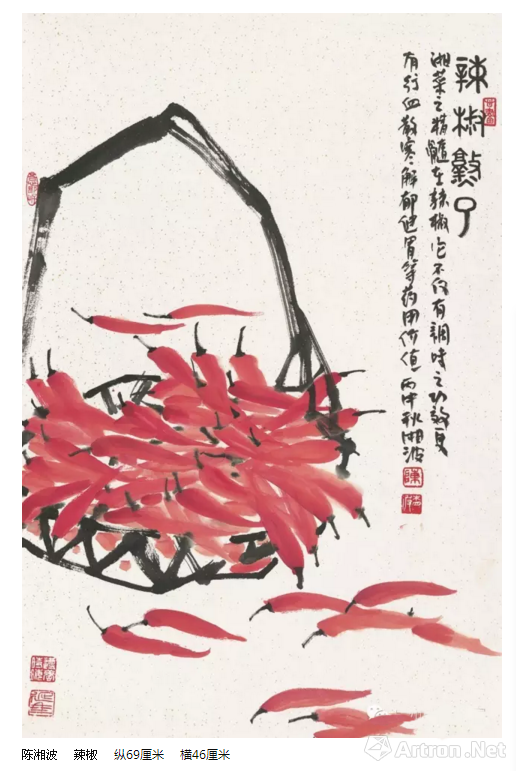 辣椒熟了
湘菜之精髓在辣椒它不仅有調味之功效更
有行血散寒解郁健胃等药用价值丙申秋湘波
陈湘波 辣椒 纵69厘米 横46厘米
Artron.Net